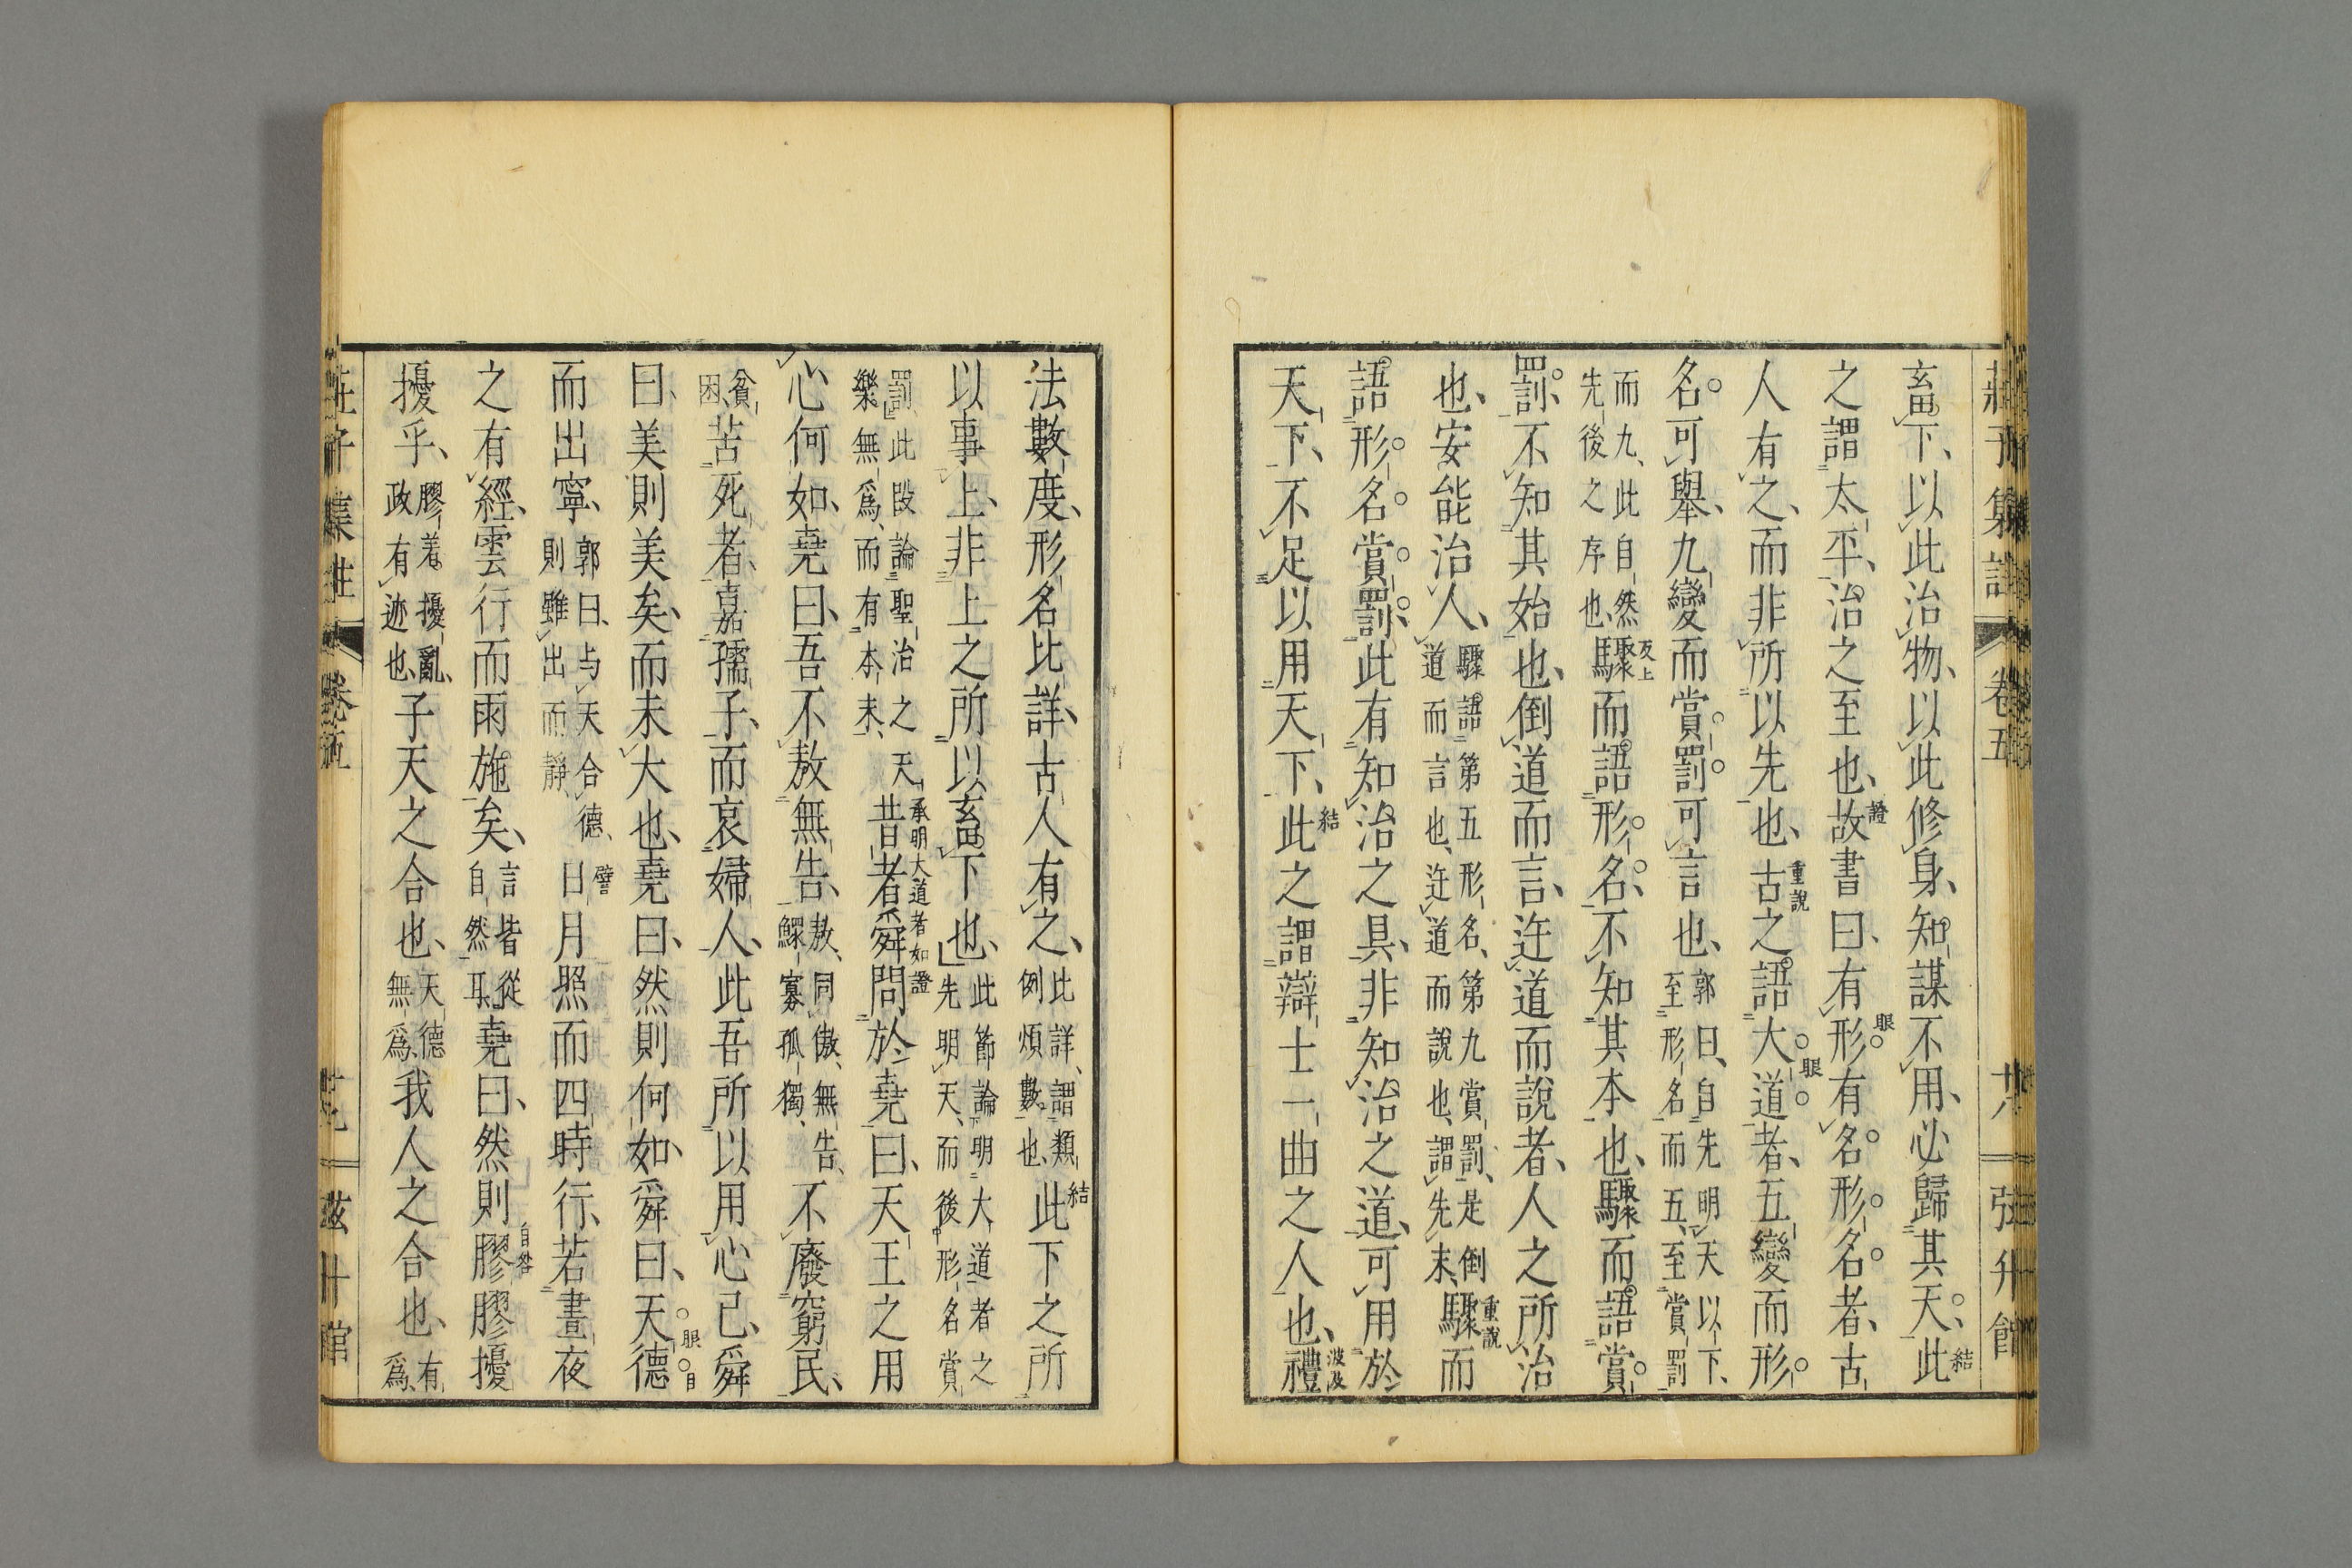 莊子集註 卷五 十八 弦升館
畜下、以此治物、以此修身、知謀不用、必歸其天、結此
之謂太平、治之至也、證故書曰、有形眼有名形名者、古
人有之、而非所以先也、重說古之語大眼道者、五變而形
名可舉、九變而賞罰可言也、郭曰、自先明天以下、至形名而五、至賞罰
而九、此自然先後之序也、反上驟而語形名、不知其本也、驟而語賞
罰、不知其始也、倒道而言、迕道而說者、人之所治
也、安能治人、驟語第五形名、第九賞罰、是倒道而言也、迕道而說也、謂先末、重說驟而
語形名賞罰、此有知治之具、非知治之道、可用於
天下、不足以用天下、結此之謂辯士一曲之人也、波及禮
法數度、形名比詳、古人有之、此詳、謂類例煩數也、結此下之所
以事上、非上之所以畜下也、此節論明大道者之先明天、而後形名賞
罰、此段論聖治之天樂無爲、而有本末、承明大道者如證昔者舜問於堯曰、天王之用
心何如、堯曰、吾不敖無告、敖、同傲、無告、鰥寡孤獨、不廢窮民、
貧困、苦死者、嘉孺子、而哀婦人、此吾所以用心已、舜
曰、美則美矣、而未大也、堯曰、然則何如、舜曰、天眼德目
而出寧、郭曰、与天合德、則雖出而靜、譬日月照而四時行、若晝夜
之有經、雲行而雨施矣、言皆從自然耳、堯曰、然則自咎膠膠擾
擾乎、膠着、擾亂、政有迹也、子天之合也、天德無爲、我人之合也、有爲、
莊子集註 卷五 弦升館